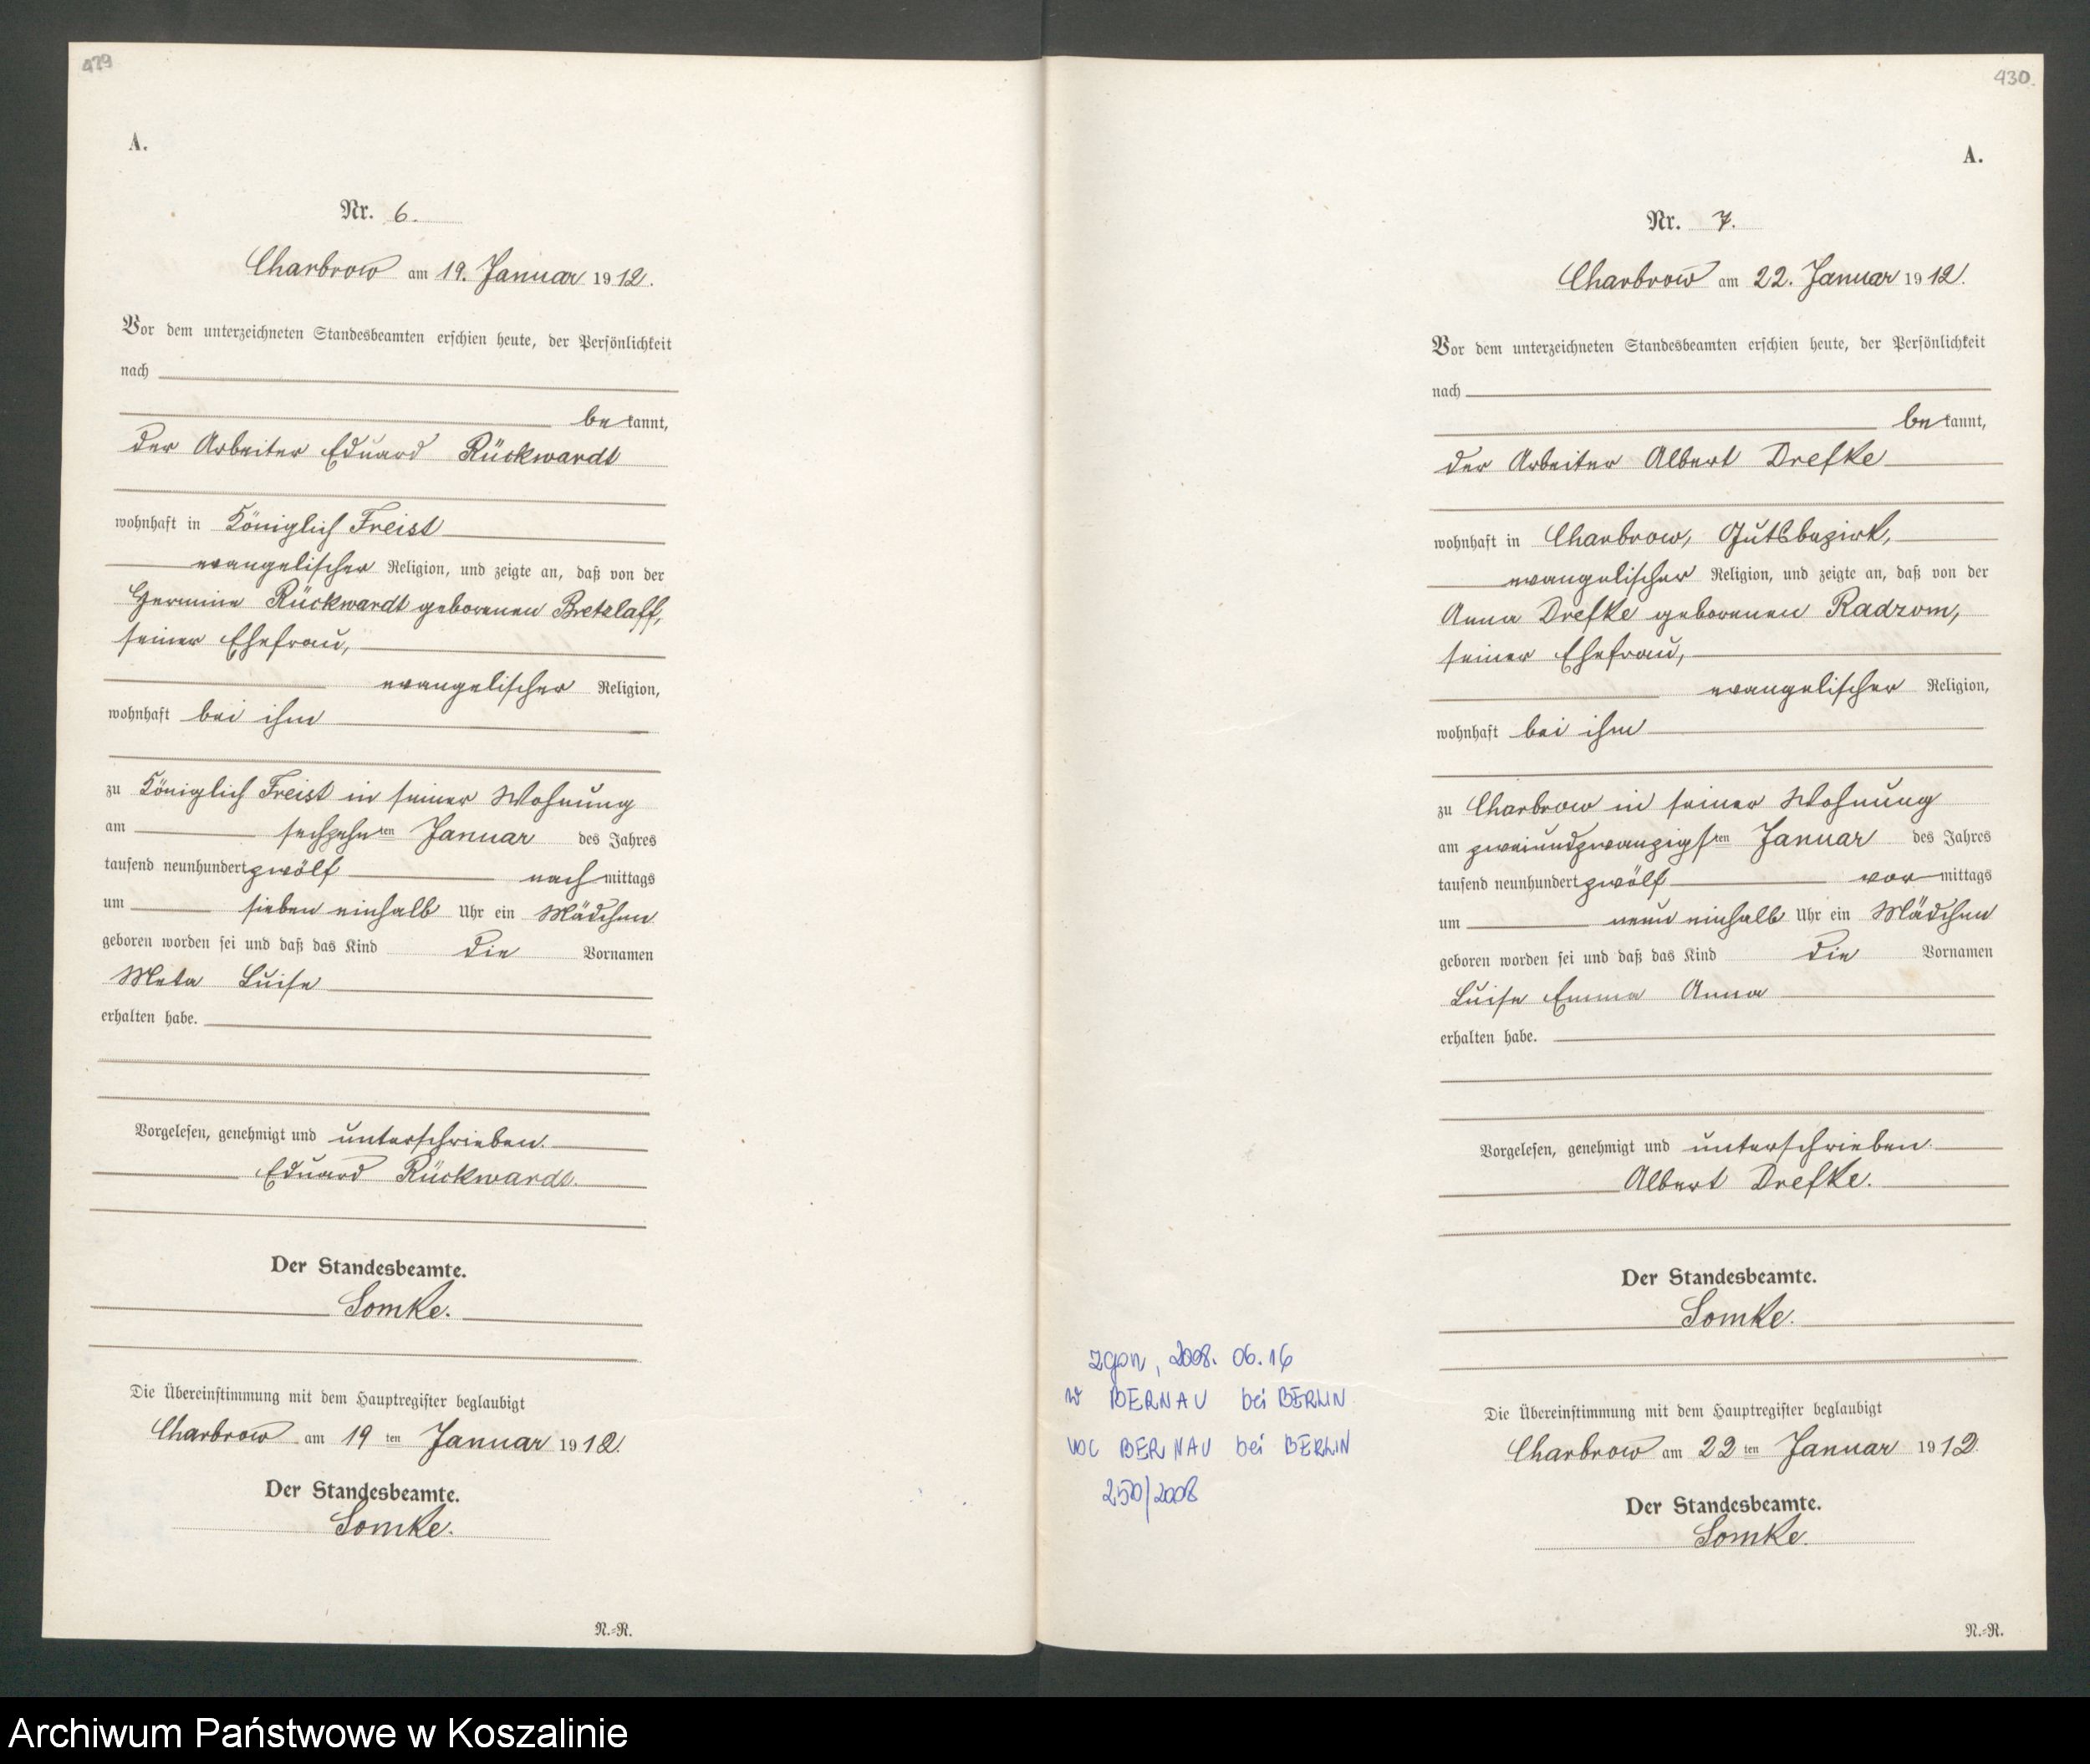 429
A.
Nr. 6.
Charbrow am 19. Januar 1912.
Vor dem unterzeichneten Standesbeamten erschien heute, der Persönlichkeit
nach
bekannt,
der Arbeiter Eduard Rückwardt
wohnhaft in Königlich Freist
evangelischer Religion, und zeigte an, daß von der
Hermine Rückwardt geborenen Bretzlaff,
seiner Ehefrau,
evangelischer Religion,
wohnhaft bei ihm
zu Königlich Freist in seiner Wohnung
am sechzehnten Januar des Jahres
tausend neunhundert zwölf nachmittags
um sieben einhalb Uhr ein Mädchen
geboren worden sei und daß das Kind die Vornamen
Meta Luise
erhalten habe.
Vorgelesen, genehmigt und unterschrieben.
Eduard Rückwardt.
Der Standesbeamte.
Lomke.
Die Übereinstimmung mit dem Hauptregister beglaubigt
Charbrow am 19ten Januar 1912.
Der Standesbeamte.
Lomke.
N.-R.
430
A.
Nr. 7.
Charbrow am 22. Januar 1912.
Vor dem unterzeichneten Standesbeamten erschien heute, der Persönlichkeit
nach
bekannt,
der Arbeiter Albert Drefke
wohnhaft in Charbrow, Gutsbezirk,
evangelischer Religion, und zeigte an, daß von der
Anna Drefke geborenen Radzom,
seiner Ehefrau,
evangelischer Religion,
wohnhaft bei ihm
zu Charbrow in seiner Wohnung
am zweiundzwanzigsten Januar des Jahres
tausend neunhundert zwölf vormittags
um neun einhalb Uhr ein Mädchen
geboren worden sei und daß das Kind die Vornamen
Luise Emma Anna
erhalten habe.
Vorgelesen, genehmigt und unterschrieben.
Albert Drefke.
Der Standesbeamte.
Lomke.
Die Übereinstimmung mit dem Hauptregister beglaubigt
Charbrow am 22ten Januar 1912.
Der Standesbeamte.
Lomke.
N.-R.
zgon, 2008. 06. 16
w BERNAU bei BERLIN
USC BERNAU bei BERLIN
250/2008
Archiwum Państwowe w Koszalinie